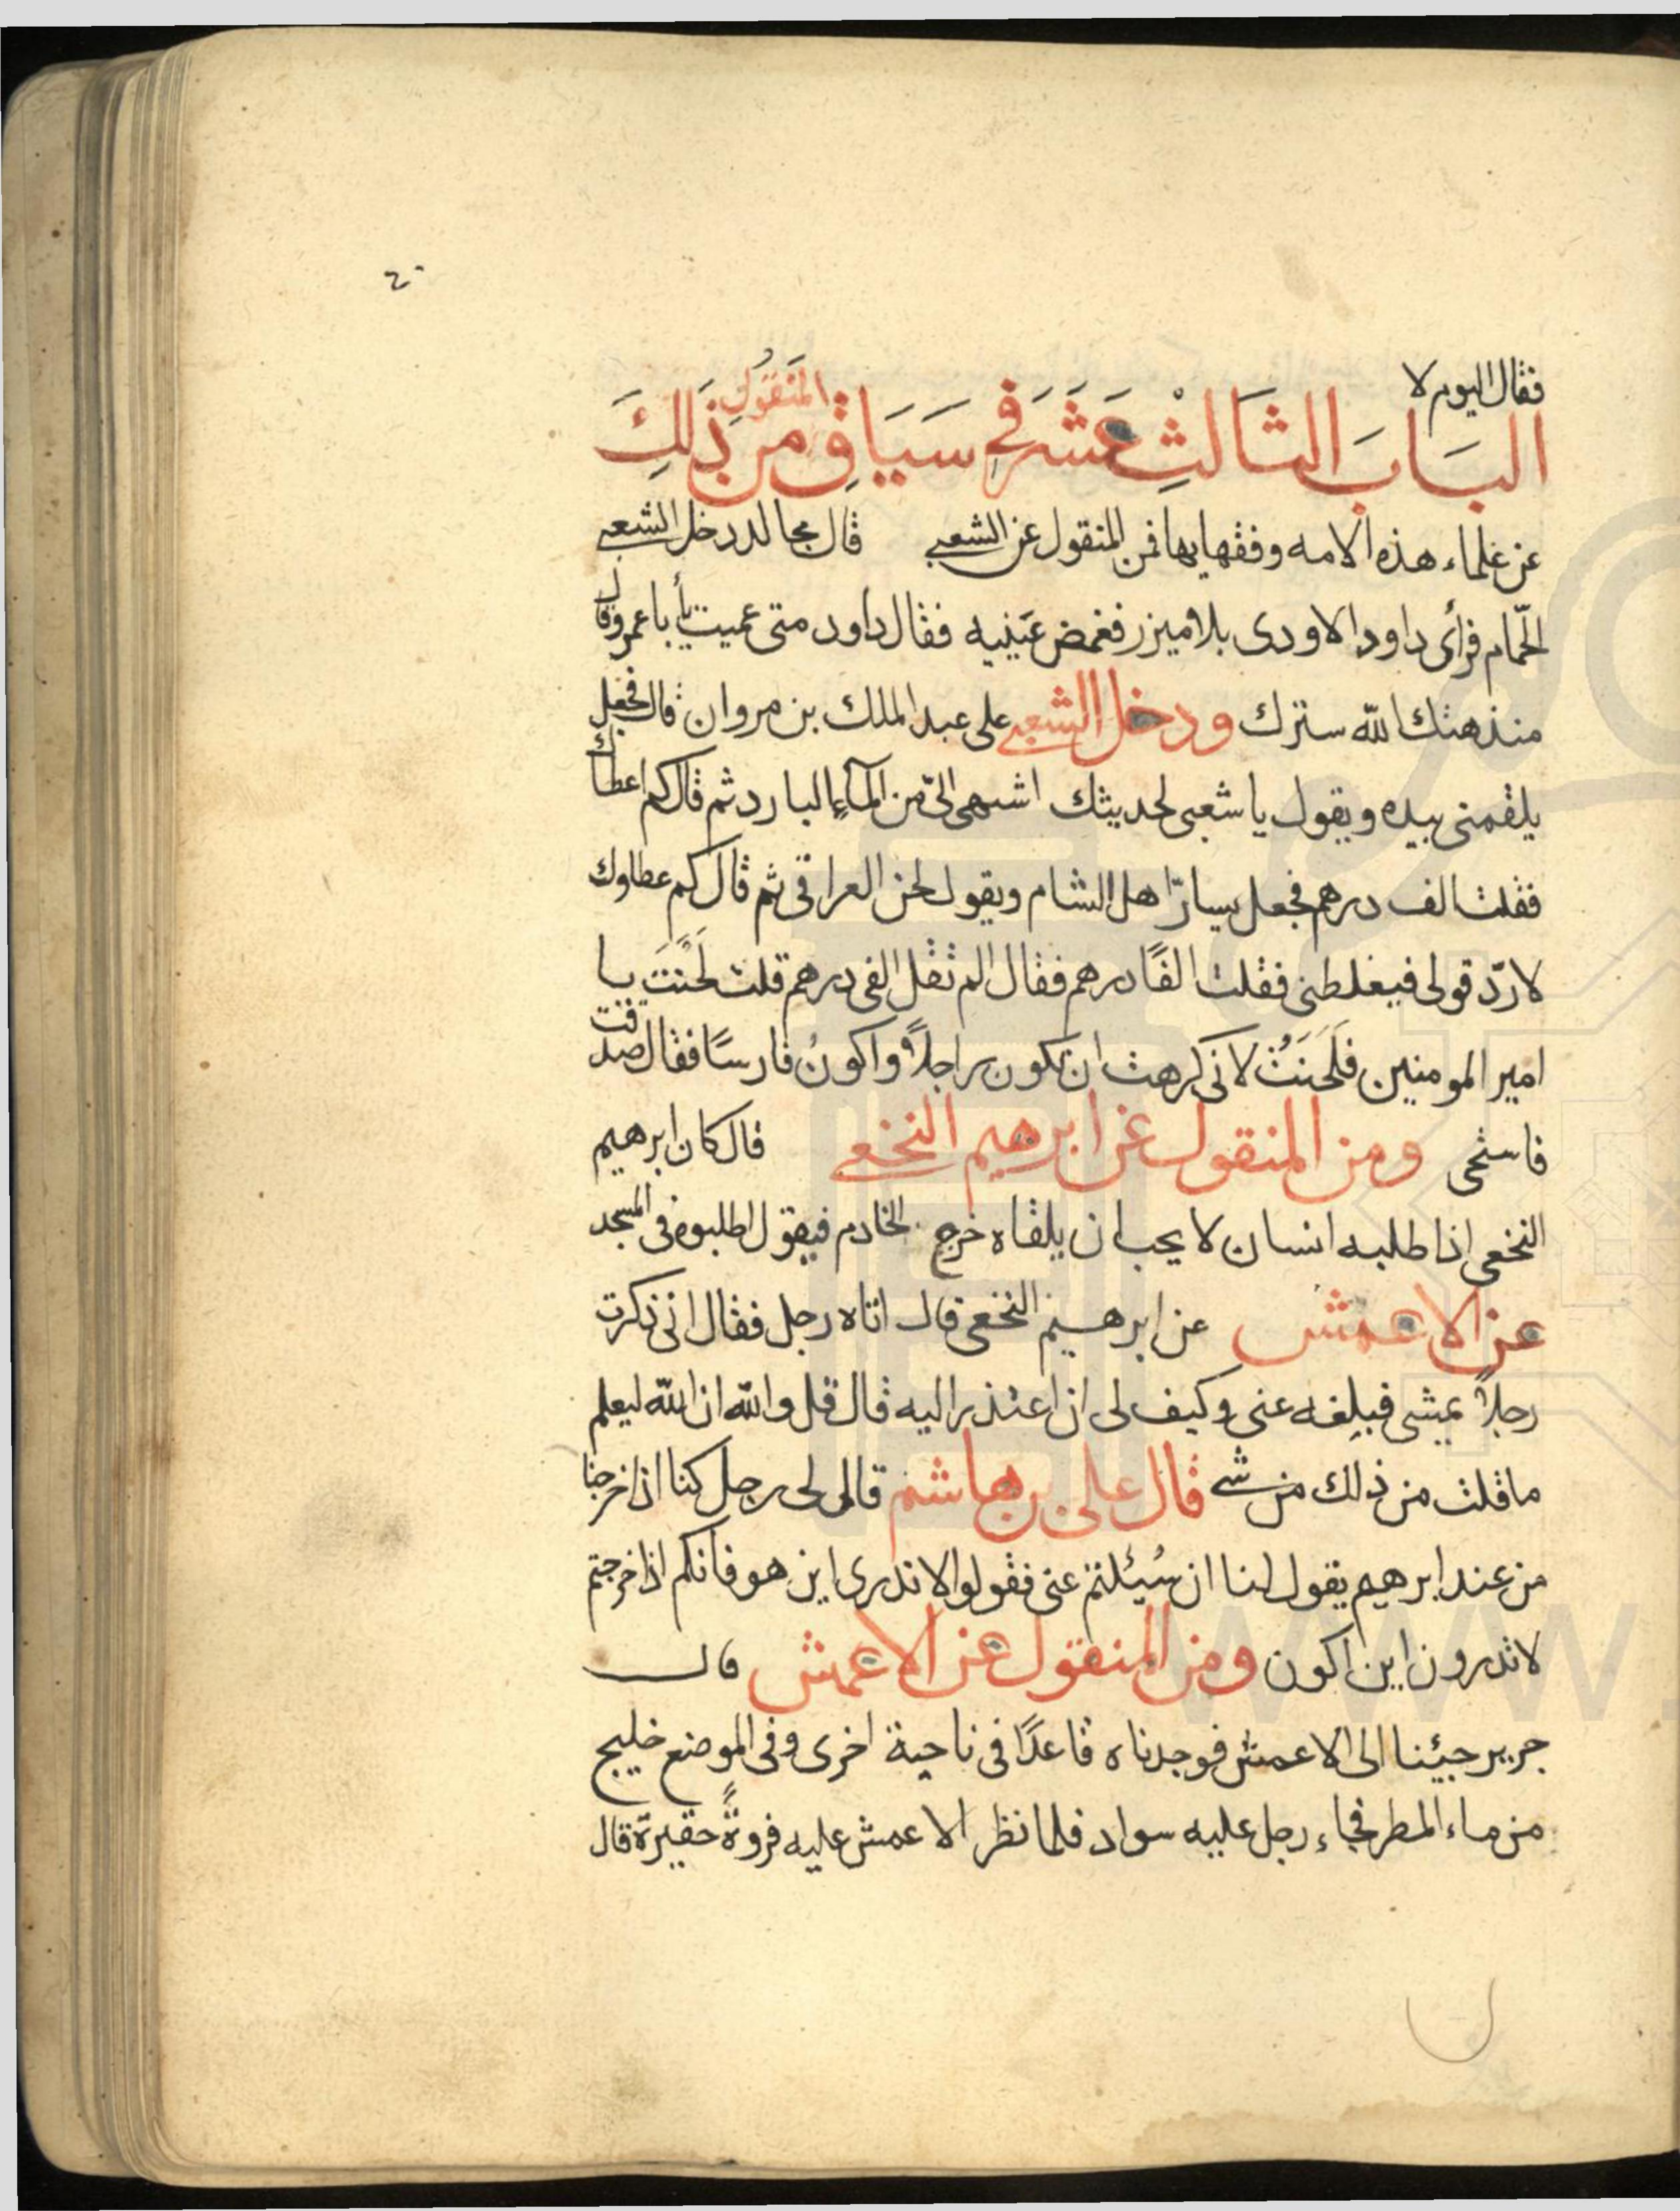 ٢٠
فقال اليوم لا
البَابَ الثَالثِ عَشَر فى سَيَاقِ المَنقُول مِن ذَلِكَ
عن علماء هذه الامه وفقهايها فمن المنقول عن الشعبى قال مجالد دخل الشعبى
الحّمام فرأى داود الاودى بلا ميزر فغمض عَينيه فقال داود متى عميت يأبا عمرو قال
منذ هتك الله سترك ودخل الشعبى على عبد الملك بن مروان قال فجعل
يلقمنى بيده ويقول يا شعبى لحديثك اشهى الىّ من المآءِ البارد ثم قال كم اعطاك
فقلت الف درهم فجعل يسارّ اهل الشام ويقول لحن العراقى ثم قال كم عطاوك
لاردّ قولى فيغلطنى فقلت الفًا درهم فقال الم تقل الفى درهم قلت لَحَنْتَ يا
امير المومنين فَلَحَنتُ لانى كرهت ان تكون راجلاً واكونُ فارسًا فقال صدقت
فاستحى ومن المنقول عن ابرهيم النخعى قال كان ابرهيم
النخعى اذا طلبه انسان لا يحب ان يلقاه خرج الخادم فيقول اطلبوه فى المسجد
عن الاعمش عن ابرهيم النخعى قال اتاه رجل فقال انى ذكرت
رجلاً بمشى فبلغه عنى وكيف لى ان اعتذر اليه قال قل والله ان الله ليعلم
ما قلت من ذلك من شى قال على بن هاشم قالى لى رجل كنا اذا خرجنا
من عند ابرهيم يقول لنا ان سُئلتم عنى فقولوا لا ندرى اين هو فانكم اذا خرجتم
لا تدرون اين اكون ومن المنقول عن الاعمش قال
جرير جيئنا الى الاعمش فوجدناه قاعدًا فى ناحية اخرى وفى الموضع خليج
من ماء المطر فجاء رجل عليه سواد فلما نظر الاعمش عليه فروةً حقيرة قال